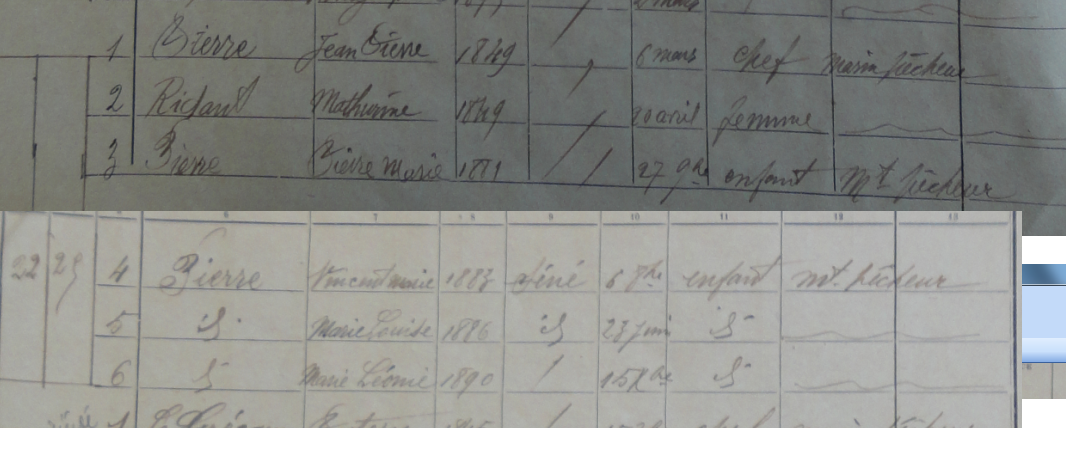 1 Pierre Jean Pierre 1849 / 6 mars chef marin pêcheur
2 Richard Mathurine 1849 / 20 avril femme
3 Pierre Pierre Marie 1881 / 27 9bre enfant Mt pêcheur
6 7 8 9 10 11 12 13
22 25 4 Pierre Vincent marie 1883 Séné 6 8bre enfant mt. pêcheur
5 d° Marie Louise 1886 d° 23 juin d°
6 d° Marie Léonie 1890 / 15 d°